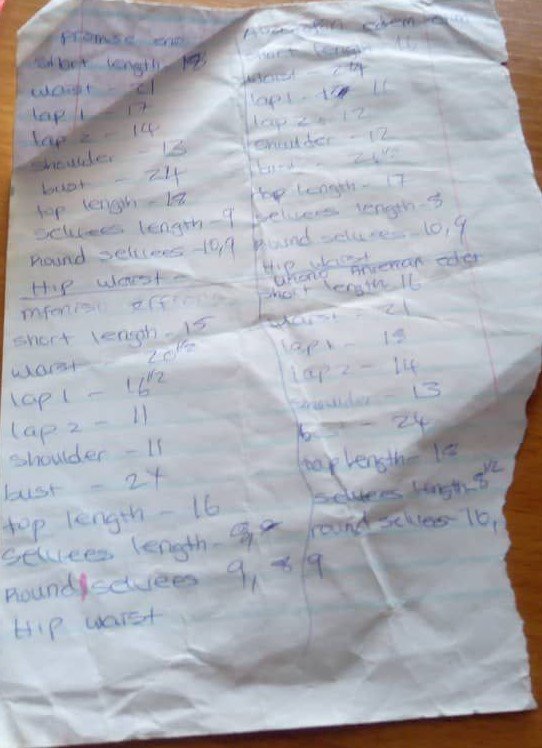 Promise
short length - 18
waist - 21
lap 1 - 17
lap 2 - 14
shoulder - 13
bust - 24
top length - 18
selvees length - 9
Round selvees - 10,9
Hip waist -
short length - 15
waist - 20 1/2
lap 1 - 16 1/2
lap 2 - 11
shoulder - 11
bust - 24
top length - 16
selvees length -
Round selvees 9, 9
Hip waist
short length - 16
waist - 24
lap 1 - 11
lap 2 - 12
shoulder - 12
bust -
top length - 17
selvees length - 8
Round selvees - 10,9
Hip waist
short length 16
waist - 21
lap 1 - 15
lap 2 - 14
shoulder - 13
24
top length - 18
selvees length 8 1/2
round selvees - 10,